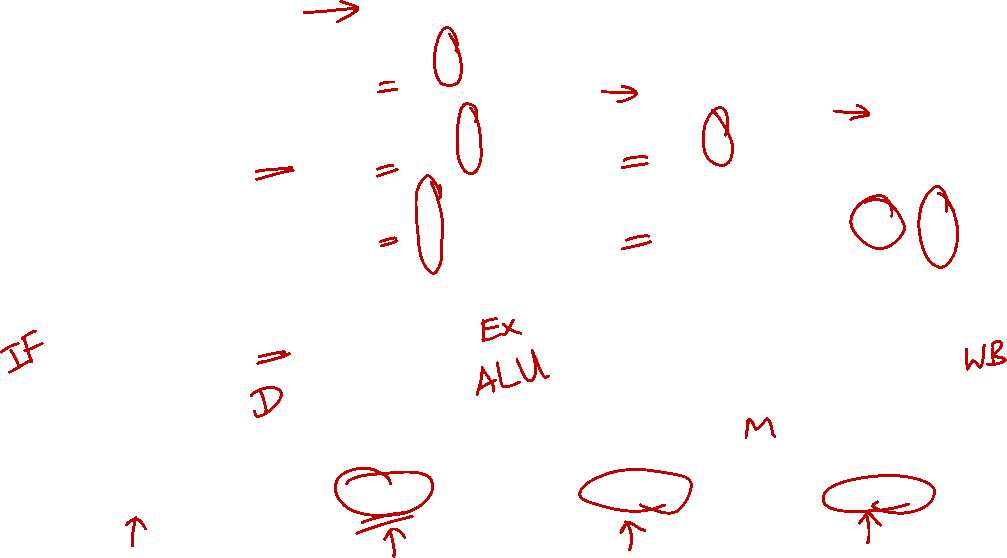 IF
D
Ex
ALU
M
WB